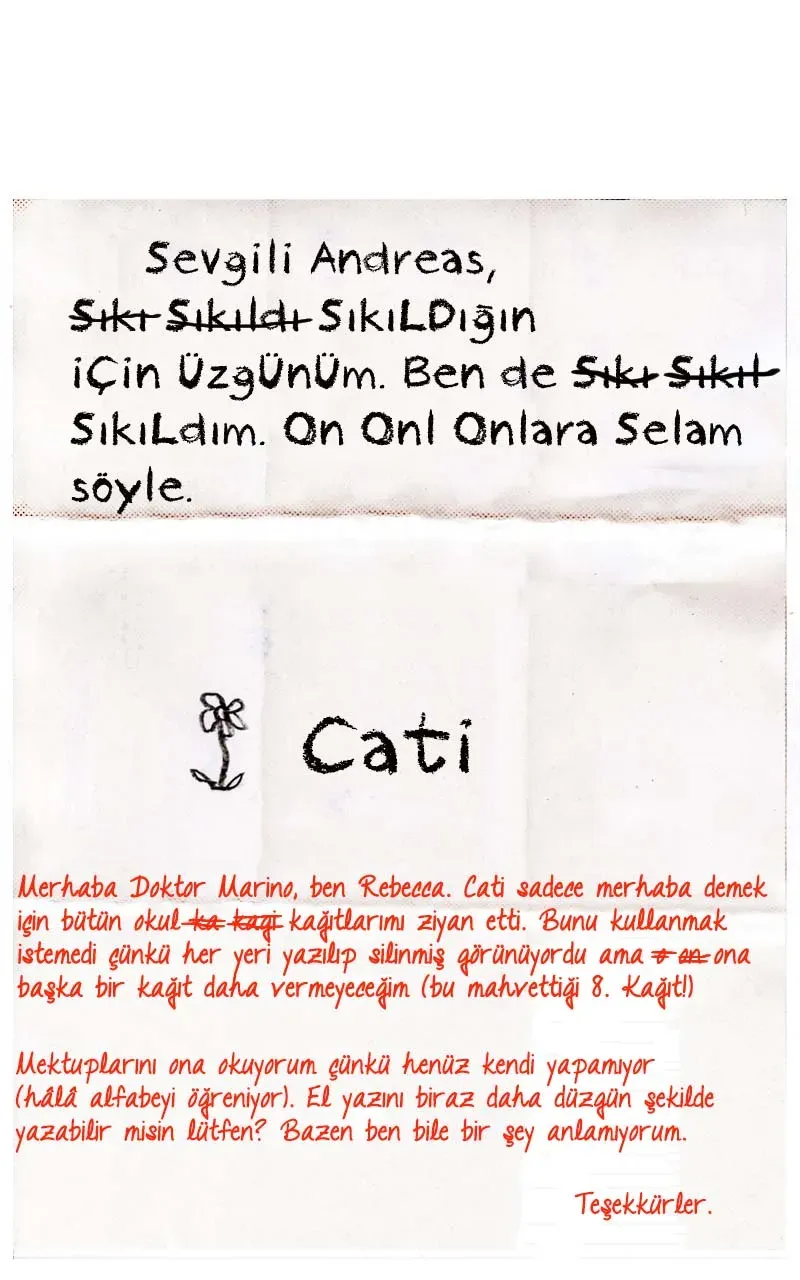 Sevgili Andreas,
Sıkı Sıkıldı SıkıLDığın
iÇin ÜzgÜnÜm. Ben de Sıkı Sıkıl
SıkıLdım. On Onl Onlara Selam
söyle.
Cati
Merhaba Doktor Marino, ben Rebecca. Cati sadece merhaba demek
için bütün okul ka kagi kağıtlarımı ziyan etti. Bunu kullanmak
istemedi çünkü her yeri yazılıp silinmiş görünüyordu ama on ona
başka bir kağıt daha vermeyeceğim (bu mahvettiği 8. Kağıt!)
Mektuplarını ona okuyorum çünkü henüz kendi yapamıyor
(hâlâ alfabeyi öğreniyor). El yazını biraz daha düzgün şekilde
yazabilir misin lütfen? Bazen ben bile bir şey anlamıyorum.
Teşekkürler.